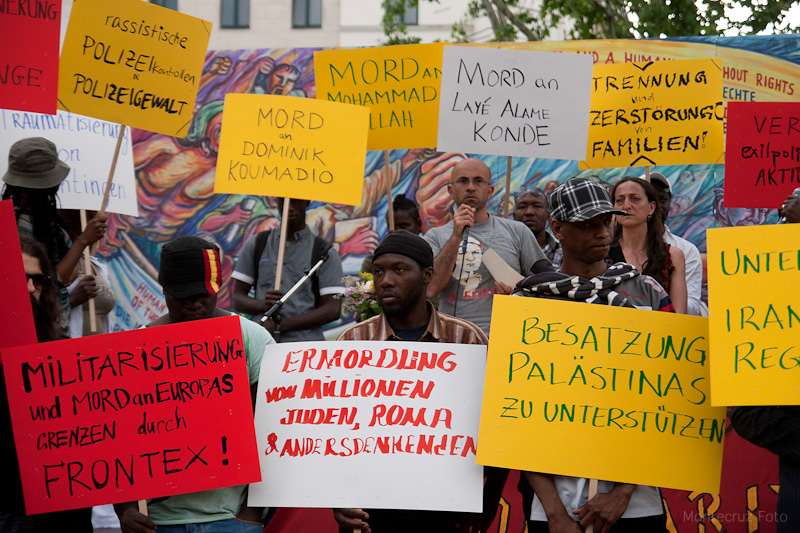 NIERUNG
NGE
rassistische
POLIZEIkontrollen
&
POLIZEIGEWALT
MORD an
MOHAMMAD
LLAH
MORD an
LAYE ALAME
KONDE
TRENNUNG
und
ZERSTÖRUNG
von
FAMILIEN!
AND A HUMAN
OUT RIGHTS
VER
exilpolit
AKTIV
Traumatisierung
von
tingenten
MORD
an
DOMINIK
KOUMADIO
UNTER
IRAN
REG
MILITARISIERUNG
und MORD an EUROPAS
GRENZEN durch
FRONTEX!
ERMORDUNG
von MILLIONEN
JUDEN, ROMA
& ANDERSDENKENDEN
BESATZUNG
PALÄSTINAS
ZU UNTERSTÜTZEN
Montecruz Foto